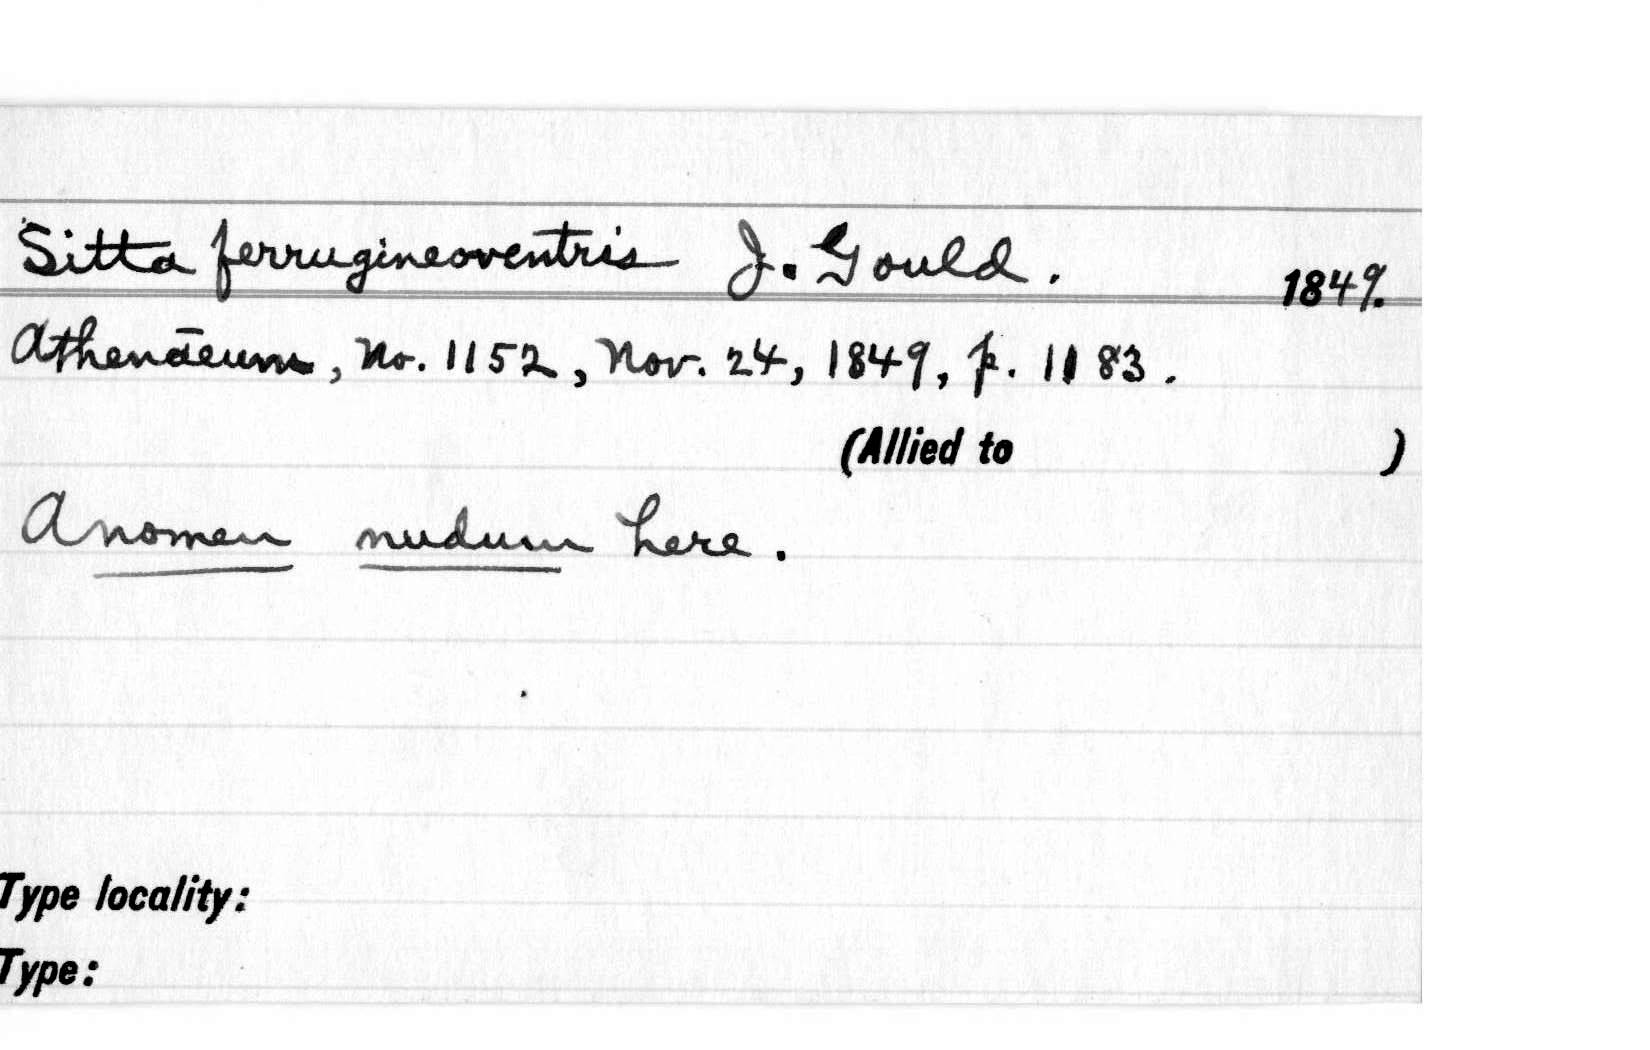 Sitta ferrugineoventris J. Gould. 1849.
Athenaeum, No. 1152, Nov. 24, 1849, p. 1183.
(Allied to )
A nomen nudum here.
Type locality:
Type: